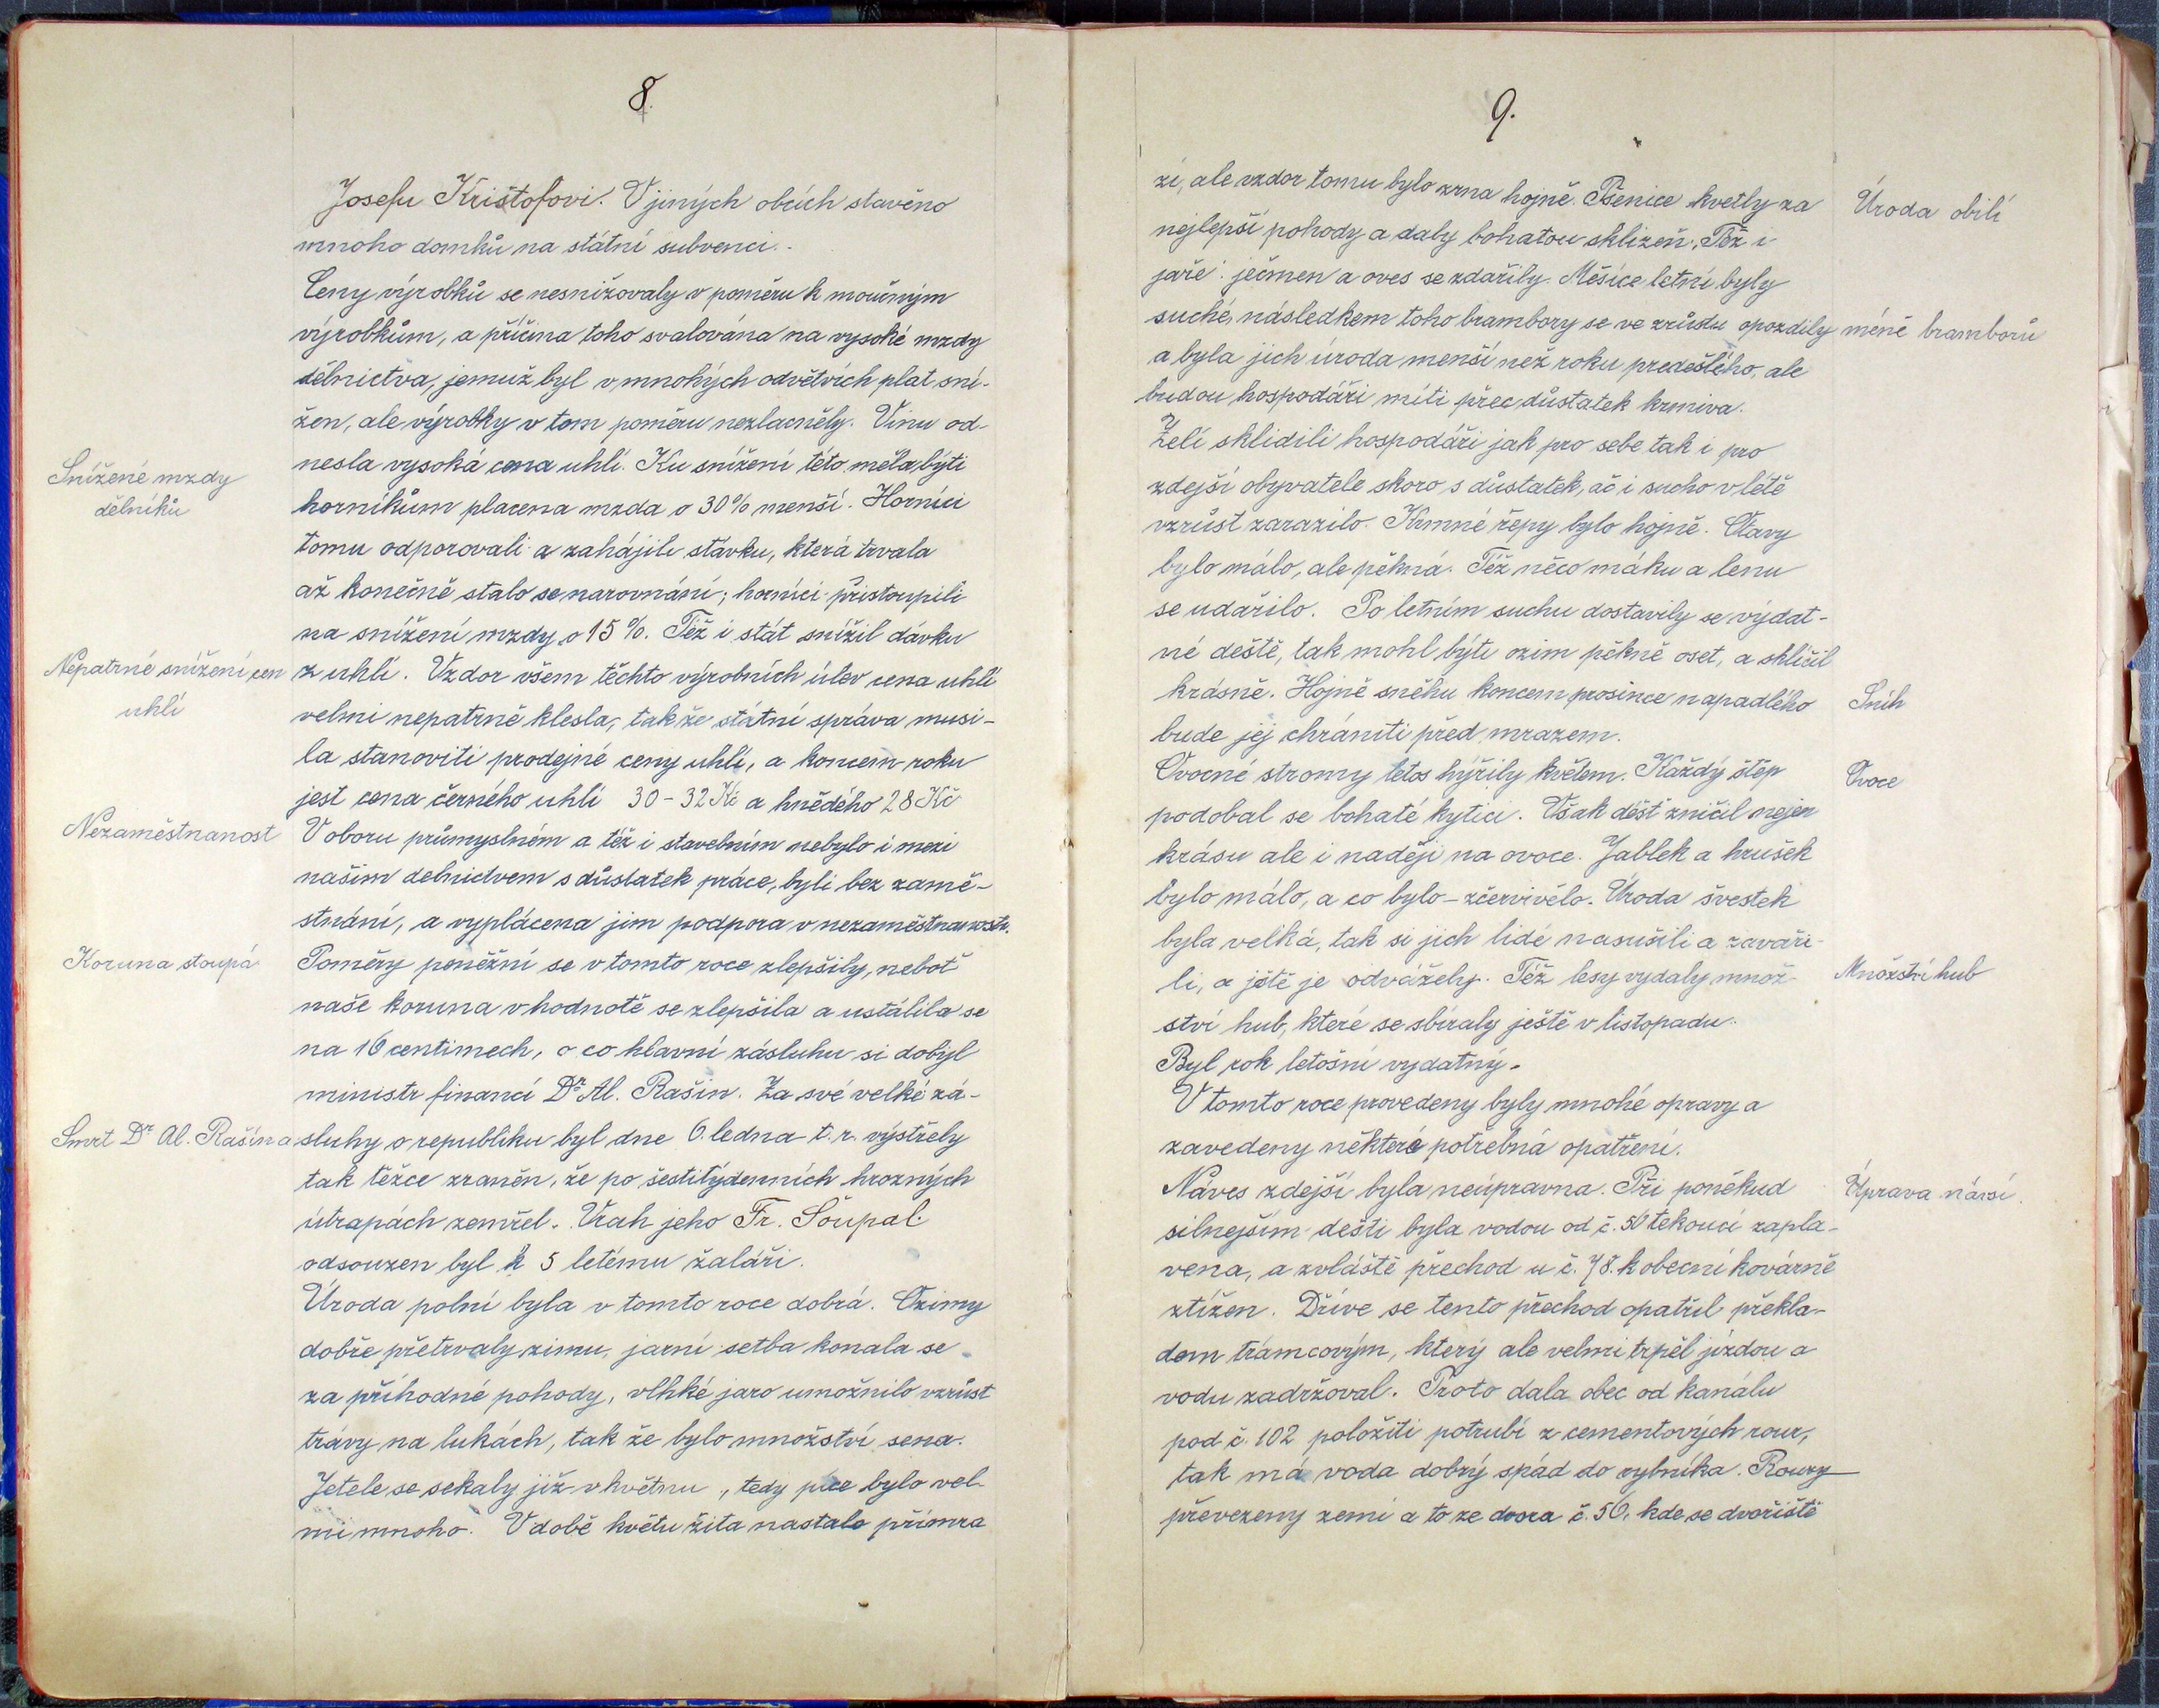 8.
Josefu Krištofovi. V jiných obcích stavěno
mnoho domků na státní subvenci.
Ceny výrobků se nesnižovaly v poměru k moučným
výrobkům, a příčina toho svalována na vysoké mzdy
dělnictva, jemuž byl v mnohých odvětvích plat sní-
žen, ale výrobky v tom poměru nezlacněly. Vinu od-
nesla vysoká cena uhlí. Ku snížení této měla býti
Snížené mzdy
dělníků
horníkům placena mzda o 30% menší. Horníci
tomu odporovali a zahájili stávku, která trvala
až konečně stalo se narovnání; horníci přistoupili
na snížení mzdy o 15%. Též i stát snížil dávku
Nepatrné snížení cen
uhlí
z uhlí. Vzdor všem těchto výrobních úlev cena uhlí
velmi nepatrně klesla, takže státní správa musi-
la stanoviti prodejné ceny uhlí, a koncem roku
jest cena černého uhlí 30-32 Kč a hnědého 28 Kč
Nezaměstnanost
V oboru průmyslném a též i stavebním nebylo i mezi
našim delnictvem s důstatek práce, byli bez zamě-
stnání, a vyplácena jim podpora v nezaměstnanosti.
Koruna stoupá
Poměry peněžní se v tomto roce zlepšily, neboť
naše koruna v hodnotě se zlepšila a ustálila se
na 16 centimech, o co hlavní zásluhu si dobyl
ministr financí Dr. Al. Rašín. Za své velké zá-
Smrt Dr Al. Rašína
sluhy o republiku byl dne 6. ledna t. r. výstřely
tak těžce zraněn, že po šestitýdenních hrozných
útrapách zemřel. Vrah jeho Fr. Šoupal
odsouzen byl k 5 letému žaláři.
Úroda polní byla v tomto roce dobrá. Ozimy
dobře přetrvaly zimu, jarní setba konala se
za příhodné pohody, vlhké jaro umožnilo vzrůst
trávy na lukách, tak že bylo množství sena.
Jetele se sekaly již v květnu, tedy píce bylo vel-
mi mnoho. V době květu žita nastala přímra
9.
zí, ale vzdor tomu bylo zrna hojně. Pšenice kvetly za
Úroda obilí
nejlepší pohody a daly bohatou sklizeň. Též i
jaře: ječmen a oves se zdařily. Měsíce letní byly
suché, následkem toho brambory se ve zrůstu opozdily
méně bramborů
a byla jich úroda menší než roku predešlého, ale
budou hospodáři míti přec důstatek krmiva.
Zelí sklidili hospodáři jak pro sebe tak i pro
zdejší obyvatele skoro s důstatek, ač i sucho v létě
vzrůst zarazilo. Krmné řepy bylo hojně. Otavy
bylo málo, ale pěkná. Též něco máku a lenu
se udařilo. Po letním suchu dostavily se vydat-
né deště, tak mohl býti ozim pěkně oset, a sklíčil
krásně. Hojně sněhu koncem prosince napadlého
Sníh
bude jej chrániti před mrazem.
Ovocné stromy letos hýřily květem. Každý štěp
Ovoce
podobal se bohaté kytici. Však déšť zničil nejen
krásu ale i naději na ovoce. Jablek a hrušek
bylo málo, a co bylo - zčervivělo. Úroda švestek
byla velká, tak si jich lidé nasušili a zavaři-
li, a ještě je odvážely. Též lesy vydaly množ-
Množství hub
ství hub, které se sbíraly ještě v listopadu.
Byl rok letošní vydatný.
V tomto roce provedeny byly mnohé opravy a
zavedeny některé potřebná opatření.
Náves zdejší byla neúpravna. Při poněkud
Úprava návsi.
silnejším dešti byla vodou od č. 50 tekoucí zapla-
vena, a zvláště přechod u č. 78. k obecní kovárně
ztížen. Dříve se tento přechod opatřil překla-
dem trámcovým, který ale velmi trpěl jízdou a
vodu zadržoval. Proto dala obec od kanálu
pod č. 102 položiti potrubí z cementových rour,
tak má voda dobrý spád do rybníka. Roury
převezeny zemí a to ze dvora č. 50, kde se dvořiště